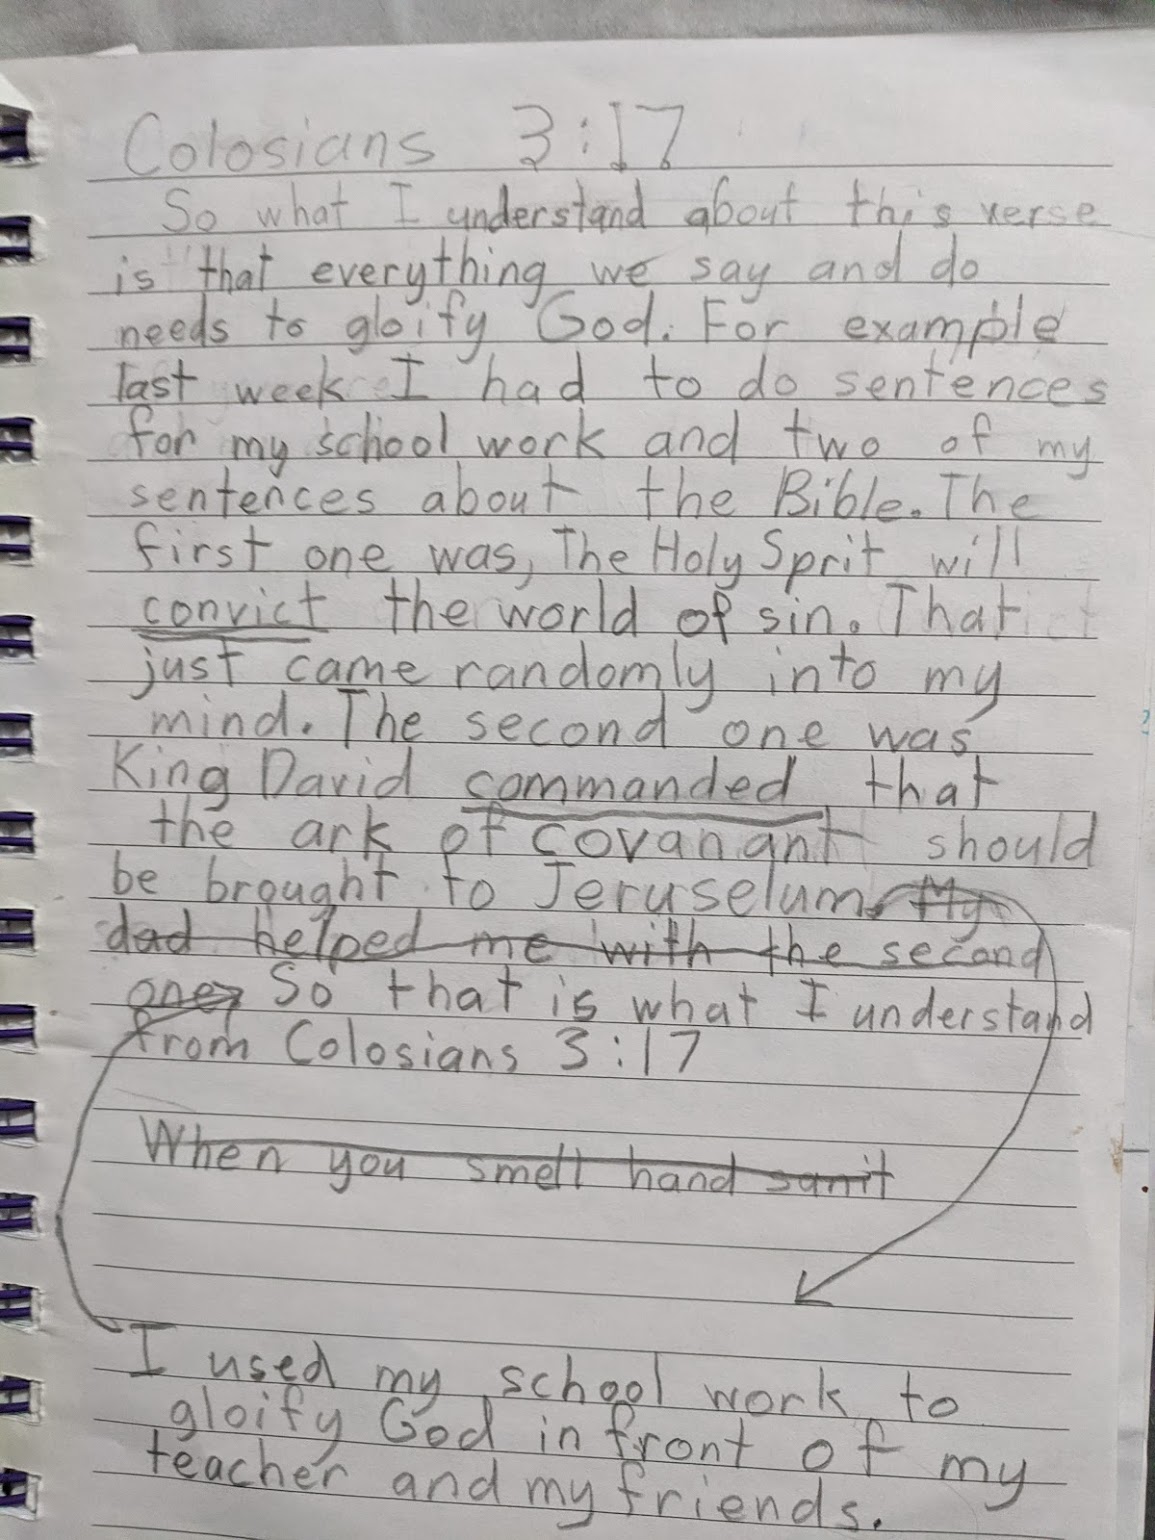 Colosians 3:17
So what I understand about this verse
is that everything we say and do
needs to gloify God. For example
last week I had to do sentences
for my school work and two of my
sentences about the Bible. The
first one was, The Holy Sprit will
convict the world of sin. That
just came randomly into my
mind. The second one was
King David commanded that
the ark of covanant should
be brought to Jeruselum. My
dad helped me with the second
one, So that is what I understand
from Colosians 3:17
When you smell hand sanit
I used my school work to
gloify God in front of my
teacher and my friends.